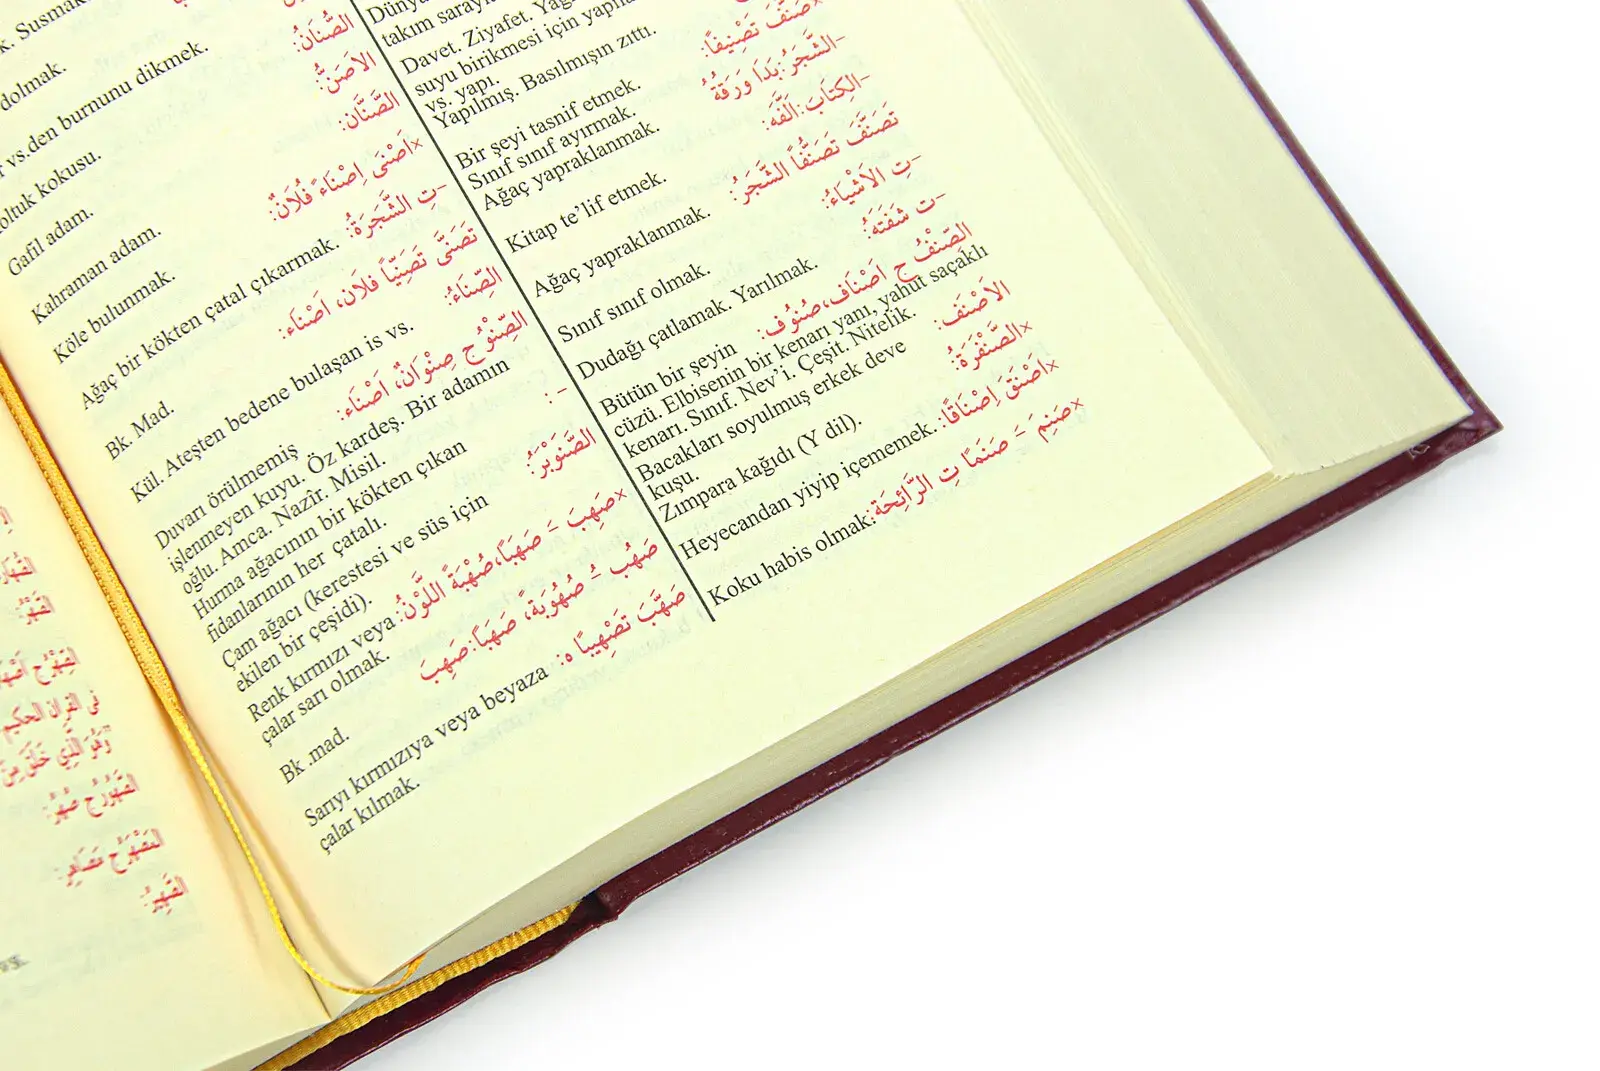 k. Susmak
dolmak.
الصُّنَانُ:
vs.den burnunu dikmek.
الأَصَنُّ:
oltuk kokusu.
الصَّنَّان:
Gafil adam.
×اَصْنَى اِصْنَاءً فُلَانٌ:
Kahraman adam.
–تِ الشَّجَرَةُ:
Köle bulunmak.
تَصَنَّى تَصَنِّيًا فلان، اَصْنَاء:
Ağaç bir kökten çatal çıkarmak.
الصِّنَاءُ:
Bk. Mad.
الصِّنْوُ ج صِنْوَانٌ، اَصْنَاء:
Kül. Ateşten bedene bulaşan is vs.
– :
Duvarı örülmemiş
işlenmeyen kuyu. Öz kardeş. Bir adamın
oğlu. Amca. Nazîr. Misil.
Hurma ağacının bir kökten çıkan
fidanlarının her çatalı.
الصَّنَوْبَرُ:
Çam ağacı (kerestesi ve süs için
ekilen bir çeşidi).
×صَهِبَ – صَهَبًا، صُهْبَةً اللَّوْنُ:
Renk kırmızı veya
çalar sarı olmak.
صَهُبَ – صُهُوبَةً، صَهَبًا: صَهِبَ
Bk .mad.
صَهَّبَ تَصْهِيبًا ه:
Sarıyı kırmızıya veya beyaza
çalar kılmak.
Dünya
takım saray
Davet. Ziyafet. Yağ
suyu birikmesi için yapıla
vs. yapı.
Yapılmış. Basılmışın zıttı.
×صَنَّفَ تَصْنِيفًا:
Bir şeyi tasnif etmek.
Sınıf sınıf ayırmak.
–الشَّجَرُ: بَدَا وَرَقُهُ
Ağaç yapraklanmak.
–الكِتَابَ: اَلَّفَهُ:
Kitap te’lif etmek.
تَصَنَّفَ تَصَنُّفًا الشَّجَرُ:
Ağaç yapraklanmak.
–تِ الأَشْيَاءُ:
Sınıf sınıf olmak.
–ت شَفَتَهُ:
Dudağı çatlamak. Yarılmak.
الصِّنْفُ ج اَصْنَاف، صُنُوف:
Bütün bir şeyin
cüzü. Elbisenin bir kenarı yanı, yahut saçaklı
kenarı. Sınıf. Nev’i. Çeşit. Nitelik.
الأَصْنَف:
Bacakları soyulmuş erkek deve
kuşu.
×الصَّنْفَرَةُ:
Zımpara kağıdı (Y dil).
×اَصْنَقَ اِصْنَاقًا:
Heyecandan yiyip içememek.
×صَنِمَ – صَنَمًا تِ الرَّائِحَة:
Koku habis olmak.
القَهْرُ:
فى القران الحكيم
القَهِيرُ: